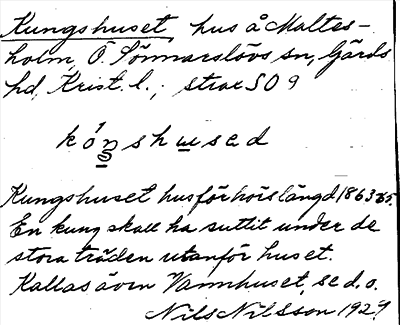 Kungshuset, hus å Maltes-
holm, Ö. Sönnarslövs sn, Gärds
hd, Krist. l., strax SO 9
kóŋshused
Kungshuset husförhörslängd 1863-65.
En kung skall ha suttit under de
stora träden utanför huset.
Kallas även Vannhuset, se d. o.
Nils Nilsson 1927